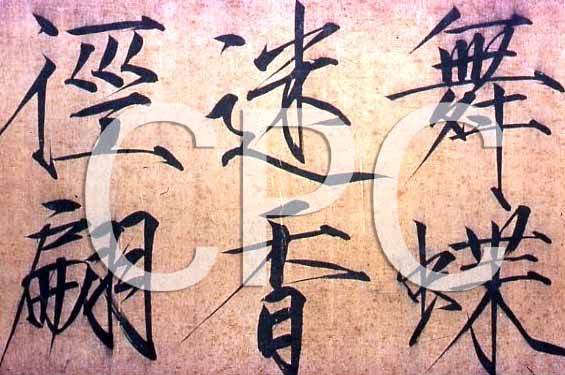 舞蝶
迷香
徑翩
CPC